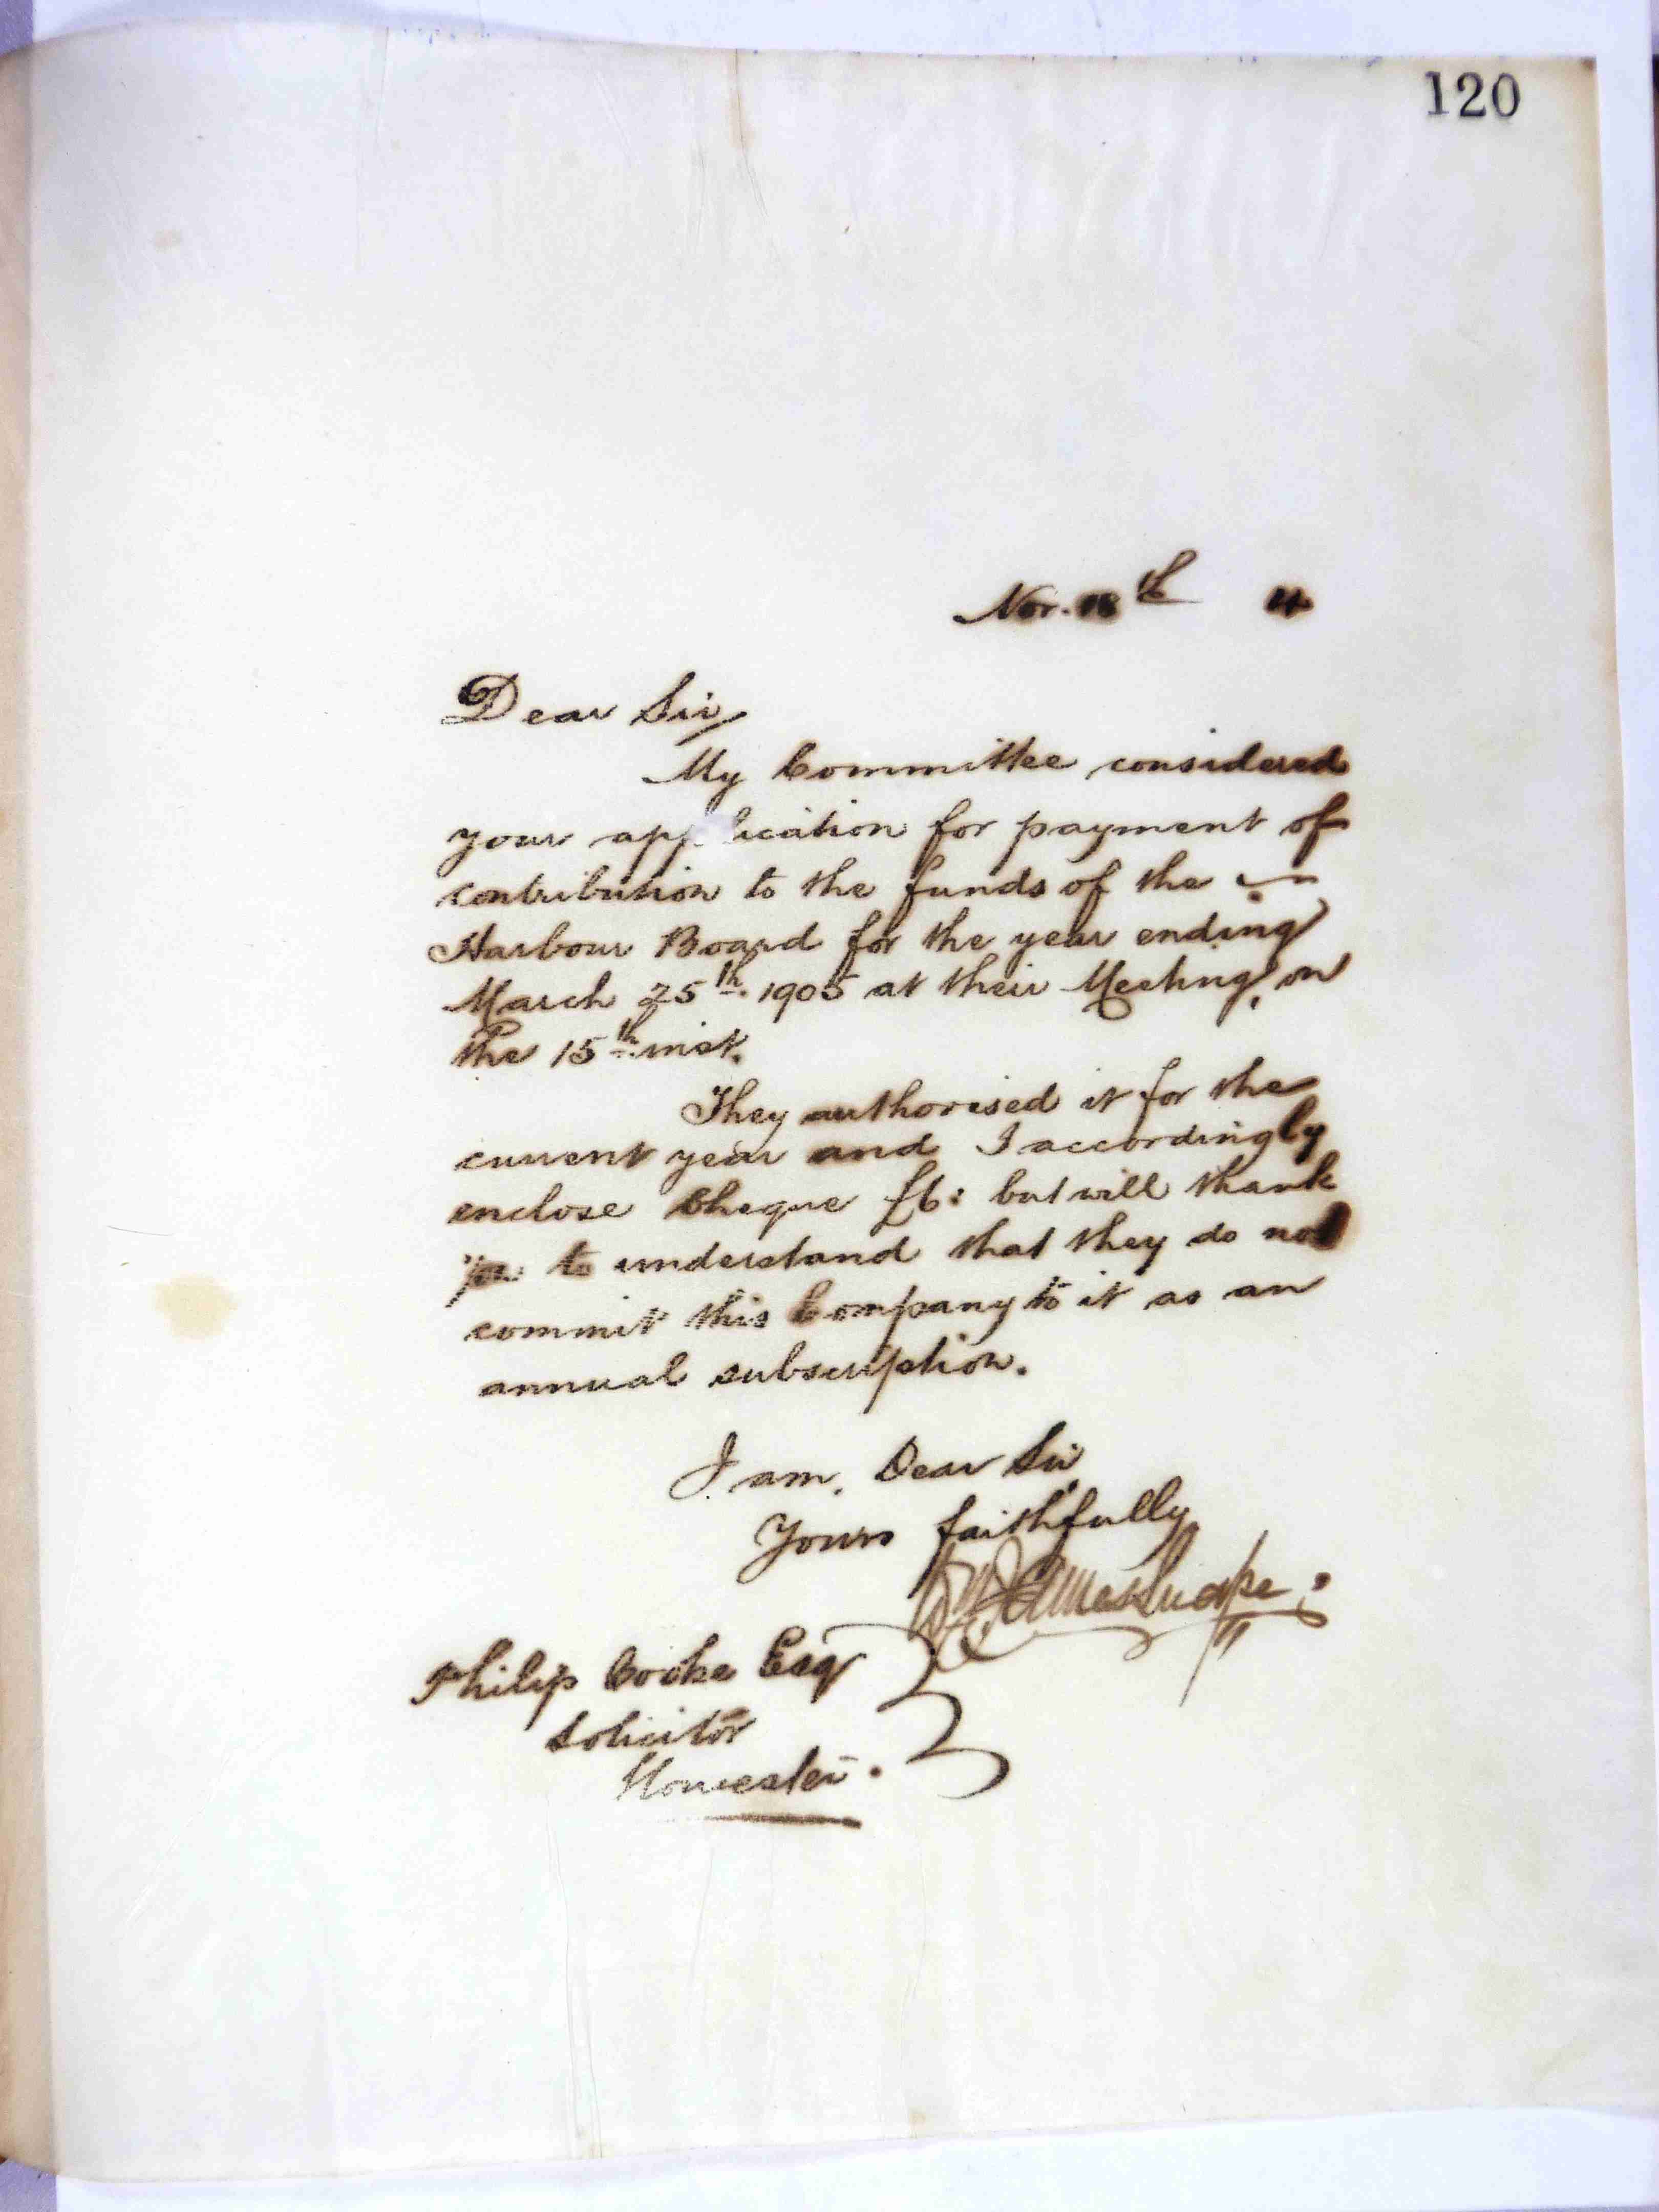 120
Nov. 18th 4
Dear Sir,
My Committee considered
your application for payment of
contribution to the funds of the
Harbour Board for the year ending
March 25th. 1905 at their Meeting, on
the 15th. inst.
They authorised it for the
current year and I accordingly
enclose Cheque £6: but will thank
you to understand that they do not
commit this Company to it as an
annual subscription.
I am, Dear Sir
Yours faithfully
Philip Cooke Esq
Solicitor
Gloucester.